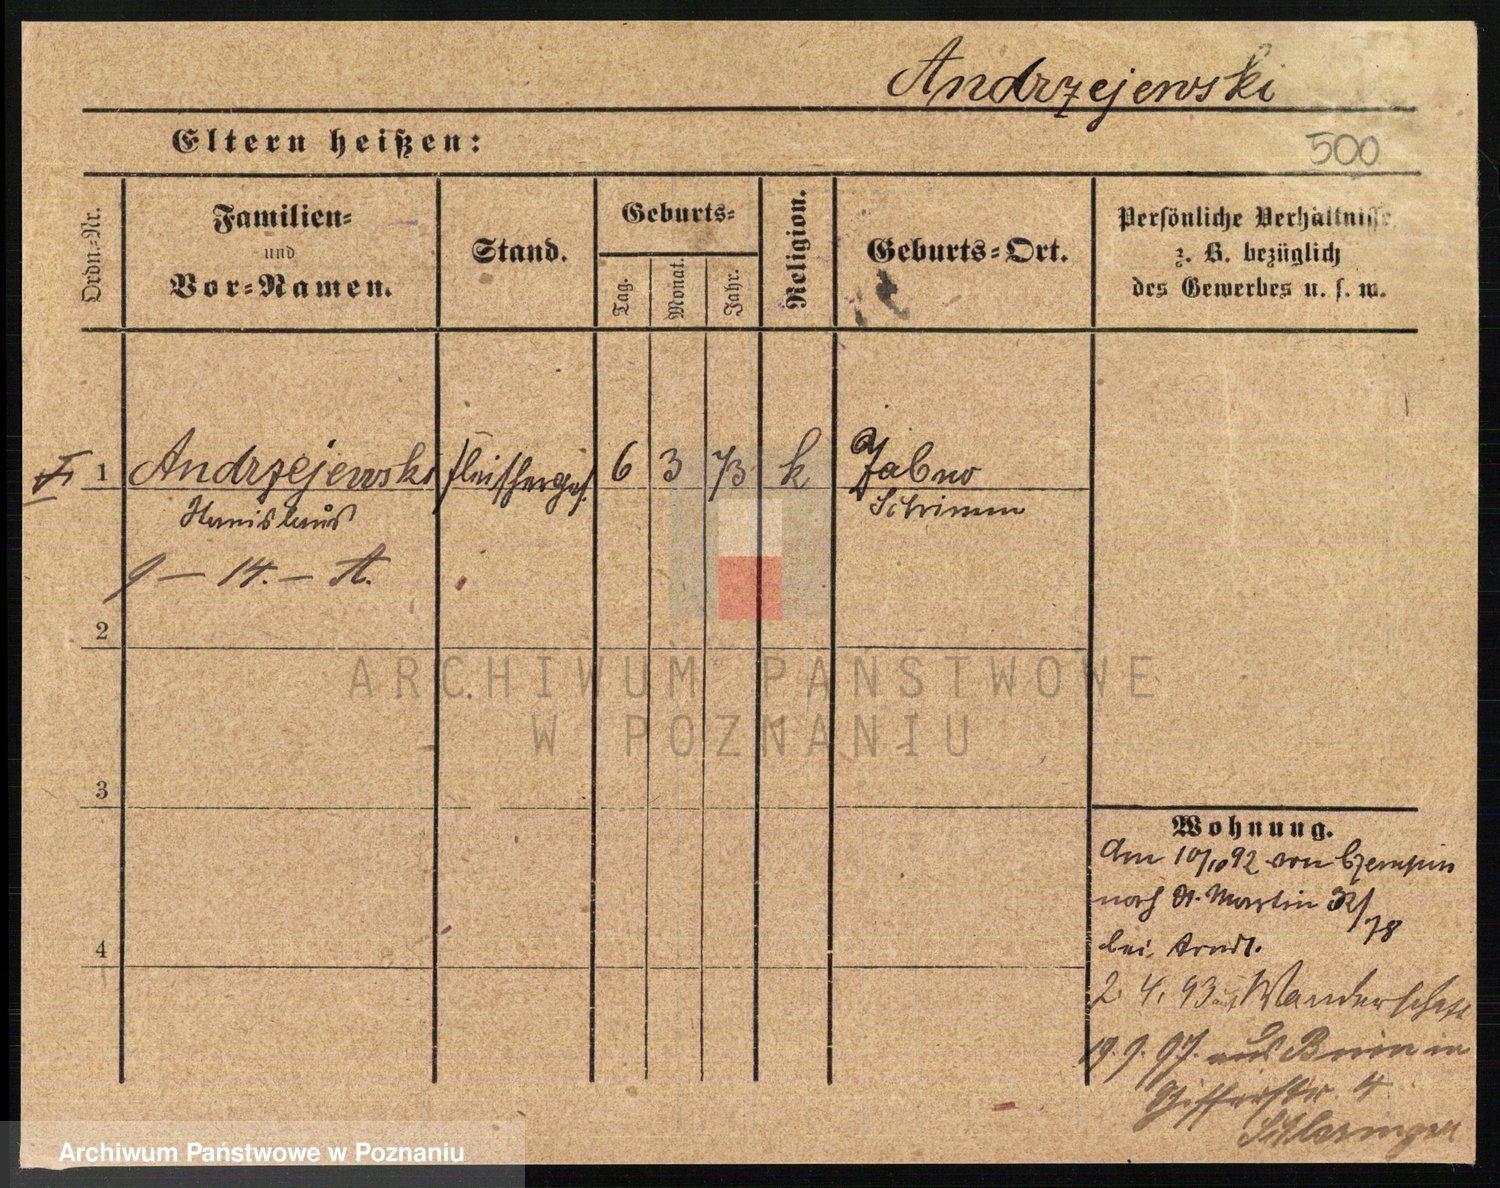 Andrzejewski
Eltern heißen:
500
Ordn.-Nr.
Familien-
und
Vor-Namen.
Stand.
Geburts-
Tag.
Monat.
Jahr.
Religion.
Geburts-Ort.
Persönliche Verhältnisse
z. B. bezüglich
des Gewerbes u. s. w.
1 Andrzejewski Fleischerges. 6 3 73 k Zabno
Stanislaus Schrimm
9 — 14. — A.
2
3
4
Wohnung.
Am 10/10 92 von Czempin
nach St. Martin 32/
78
bei Arndt.
2. 4. 93 auf Wanderschaft
19. 9. 97. aus Bnin in
4
Schlesinger
ARCHIWUM PAŃSTWOWE
W POZNANIU
Archiwum Państwowe w Poznaniu